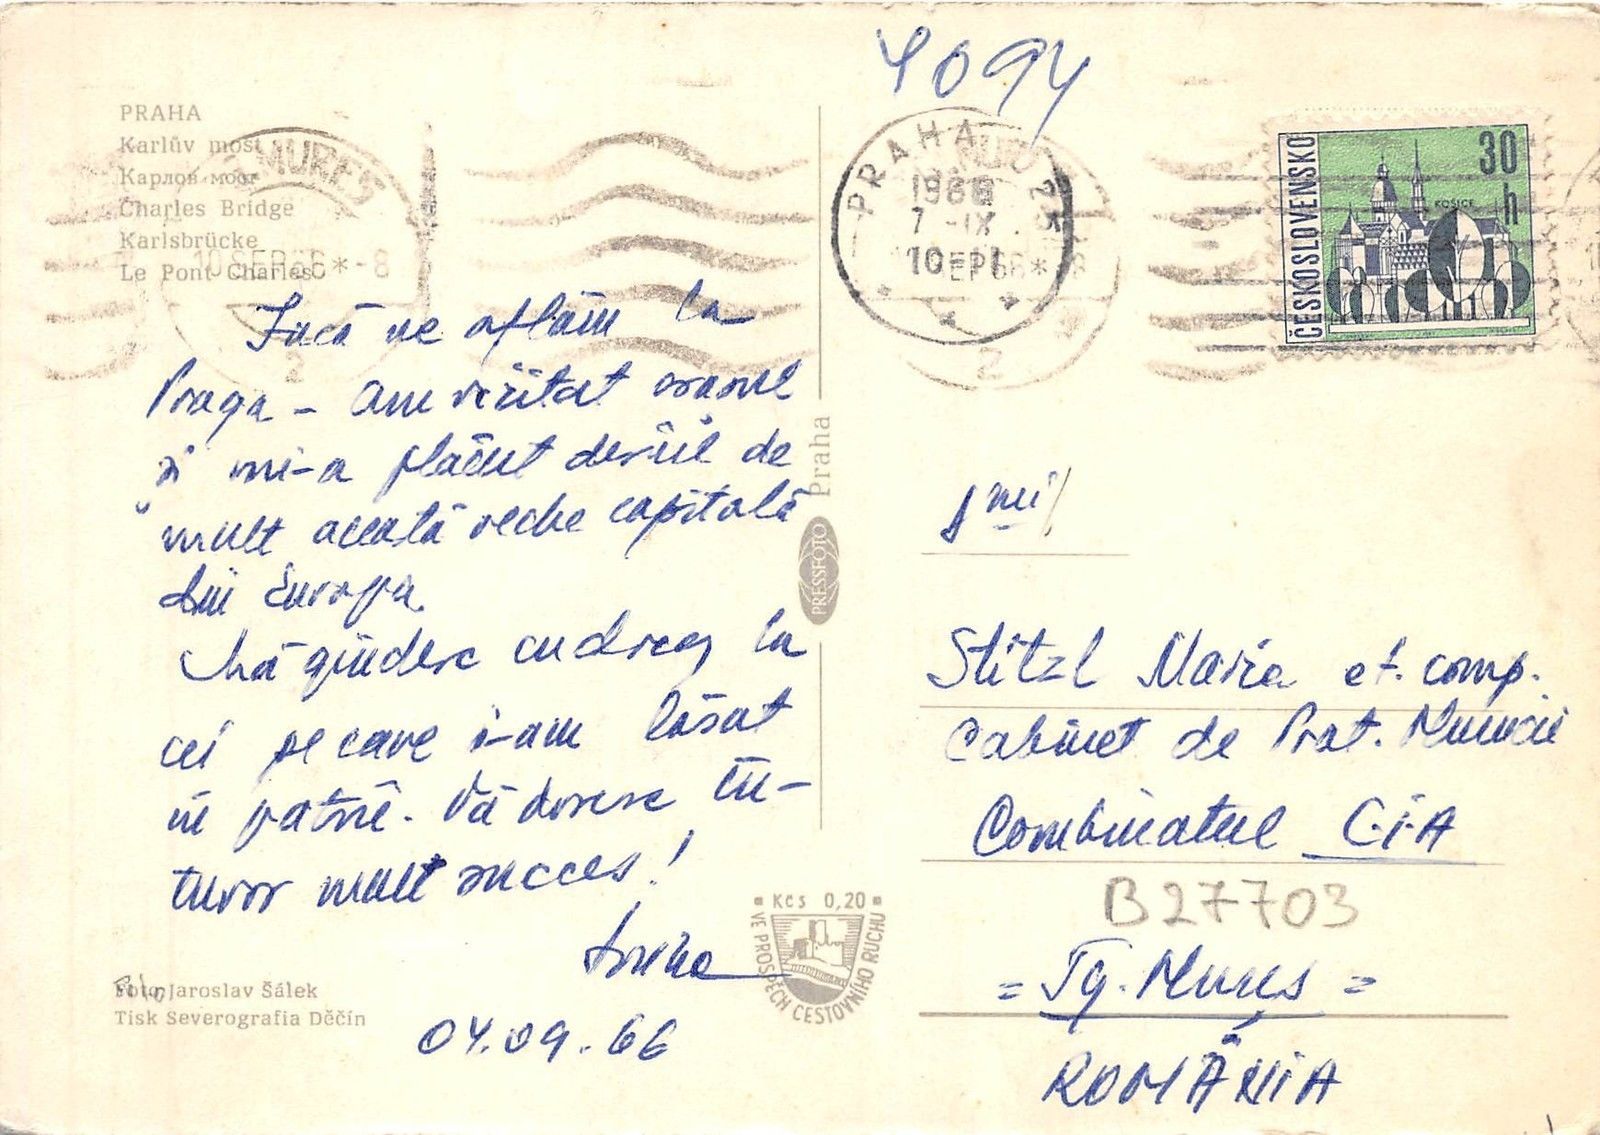 4094
PRAHA
Karlův most
Карлов мост
Charles Bridge
Karlsbrücke
Le Pont Charles
MUREȘ
10 SEP 66 * - 8
2
PRAHA 025
1966
7 -IX
10-11
SEP 66 * 8
2
ČESKOSLOVENSKO
30
h
KOŠICE
Încă ne aflăm la
Praga – Am vizitat orașul
și mi-a plăcut destul de
mult această veche capitală
din Europa.
Mă gîndesc cu drag la
cei pe care i-am lăsat
în patrie. Vă doresc tu-
turor mult succes!
04.09.66
Foto: Jaroslav Šálek
Tisk Severografia Děčín
Praha
PRESSFOTO
Kčs 0,20
VE PROSPĚCH CESTOVNÍHO RUCHU
Stitzl Maria et. comp.
Cabinet de Prot. Muncii
Combinatul C-i-A
B 27703
= Tg. Mureș =
ROMÂNIA